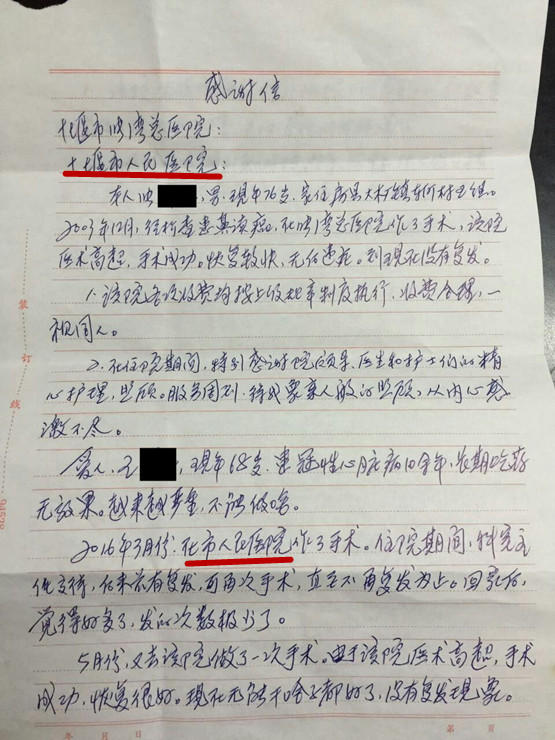 感谢信
十堰市郧湾总医院:
十堰市人民医院:
本人洪 ,男.现年76岁.家住房县大木镇 村 组。
2003年12月,经检查患鼻咽癌。在 湾总医院作了手术,该院
医术高超,手术成功。恢复较快,无后遗症。到现在没有复发。
1.该院各项收费均按上级规章制度执行,收费合理,一
视同人。
2.在住院期间,特别感谢院领导、医生和护士们的精
心护理,照顾。服务周到.待我像亲人般的照顾,从内心感
激不尽。
爱人,王 ,现年68岁.患冠性心脏病10余年,长期吃药
无效果。越来越严重,不能做啥。
2016年3月份.在市人民医院作了手术。住院期间,科室主
任交待,后来若有复发,可再次手术,直至不再复发为止。回家后,
觉得好多了,发的次数极少了。
5月份,又去该院做了一次手术。由于该院医术高超,手术
成功,恢复很好。现在无论干啥子都好了,没有复发现象。
装
订
线
年 月 日
第 页